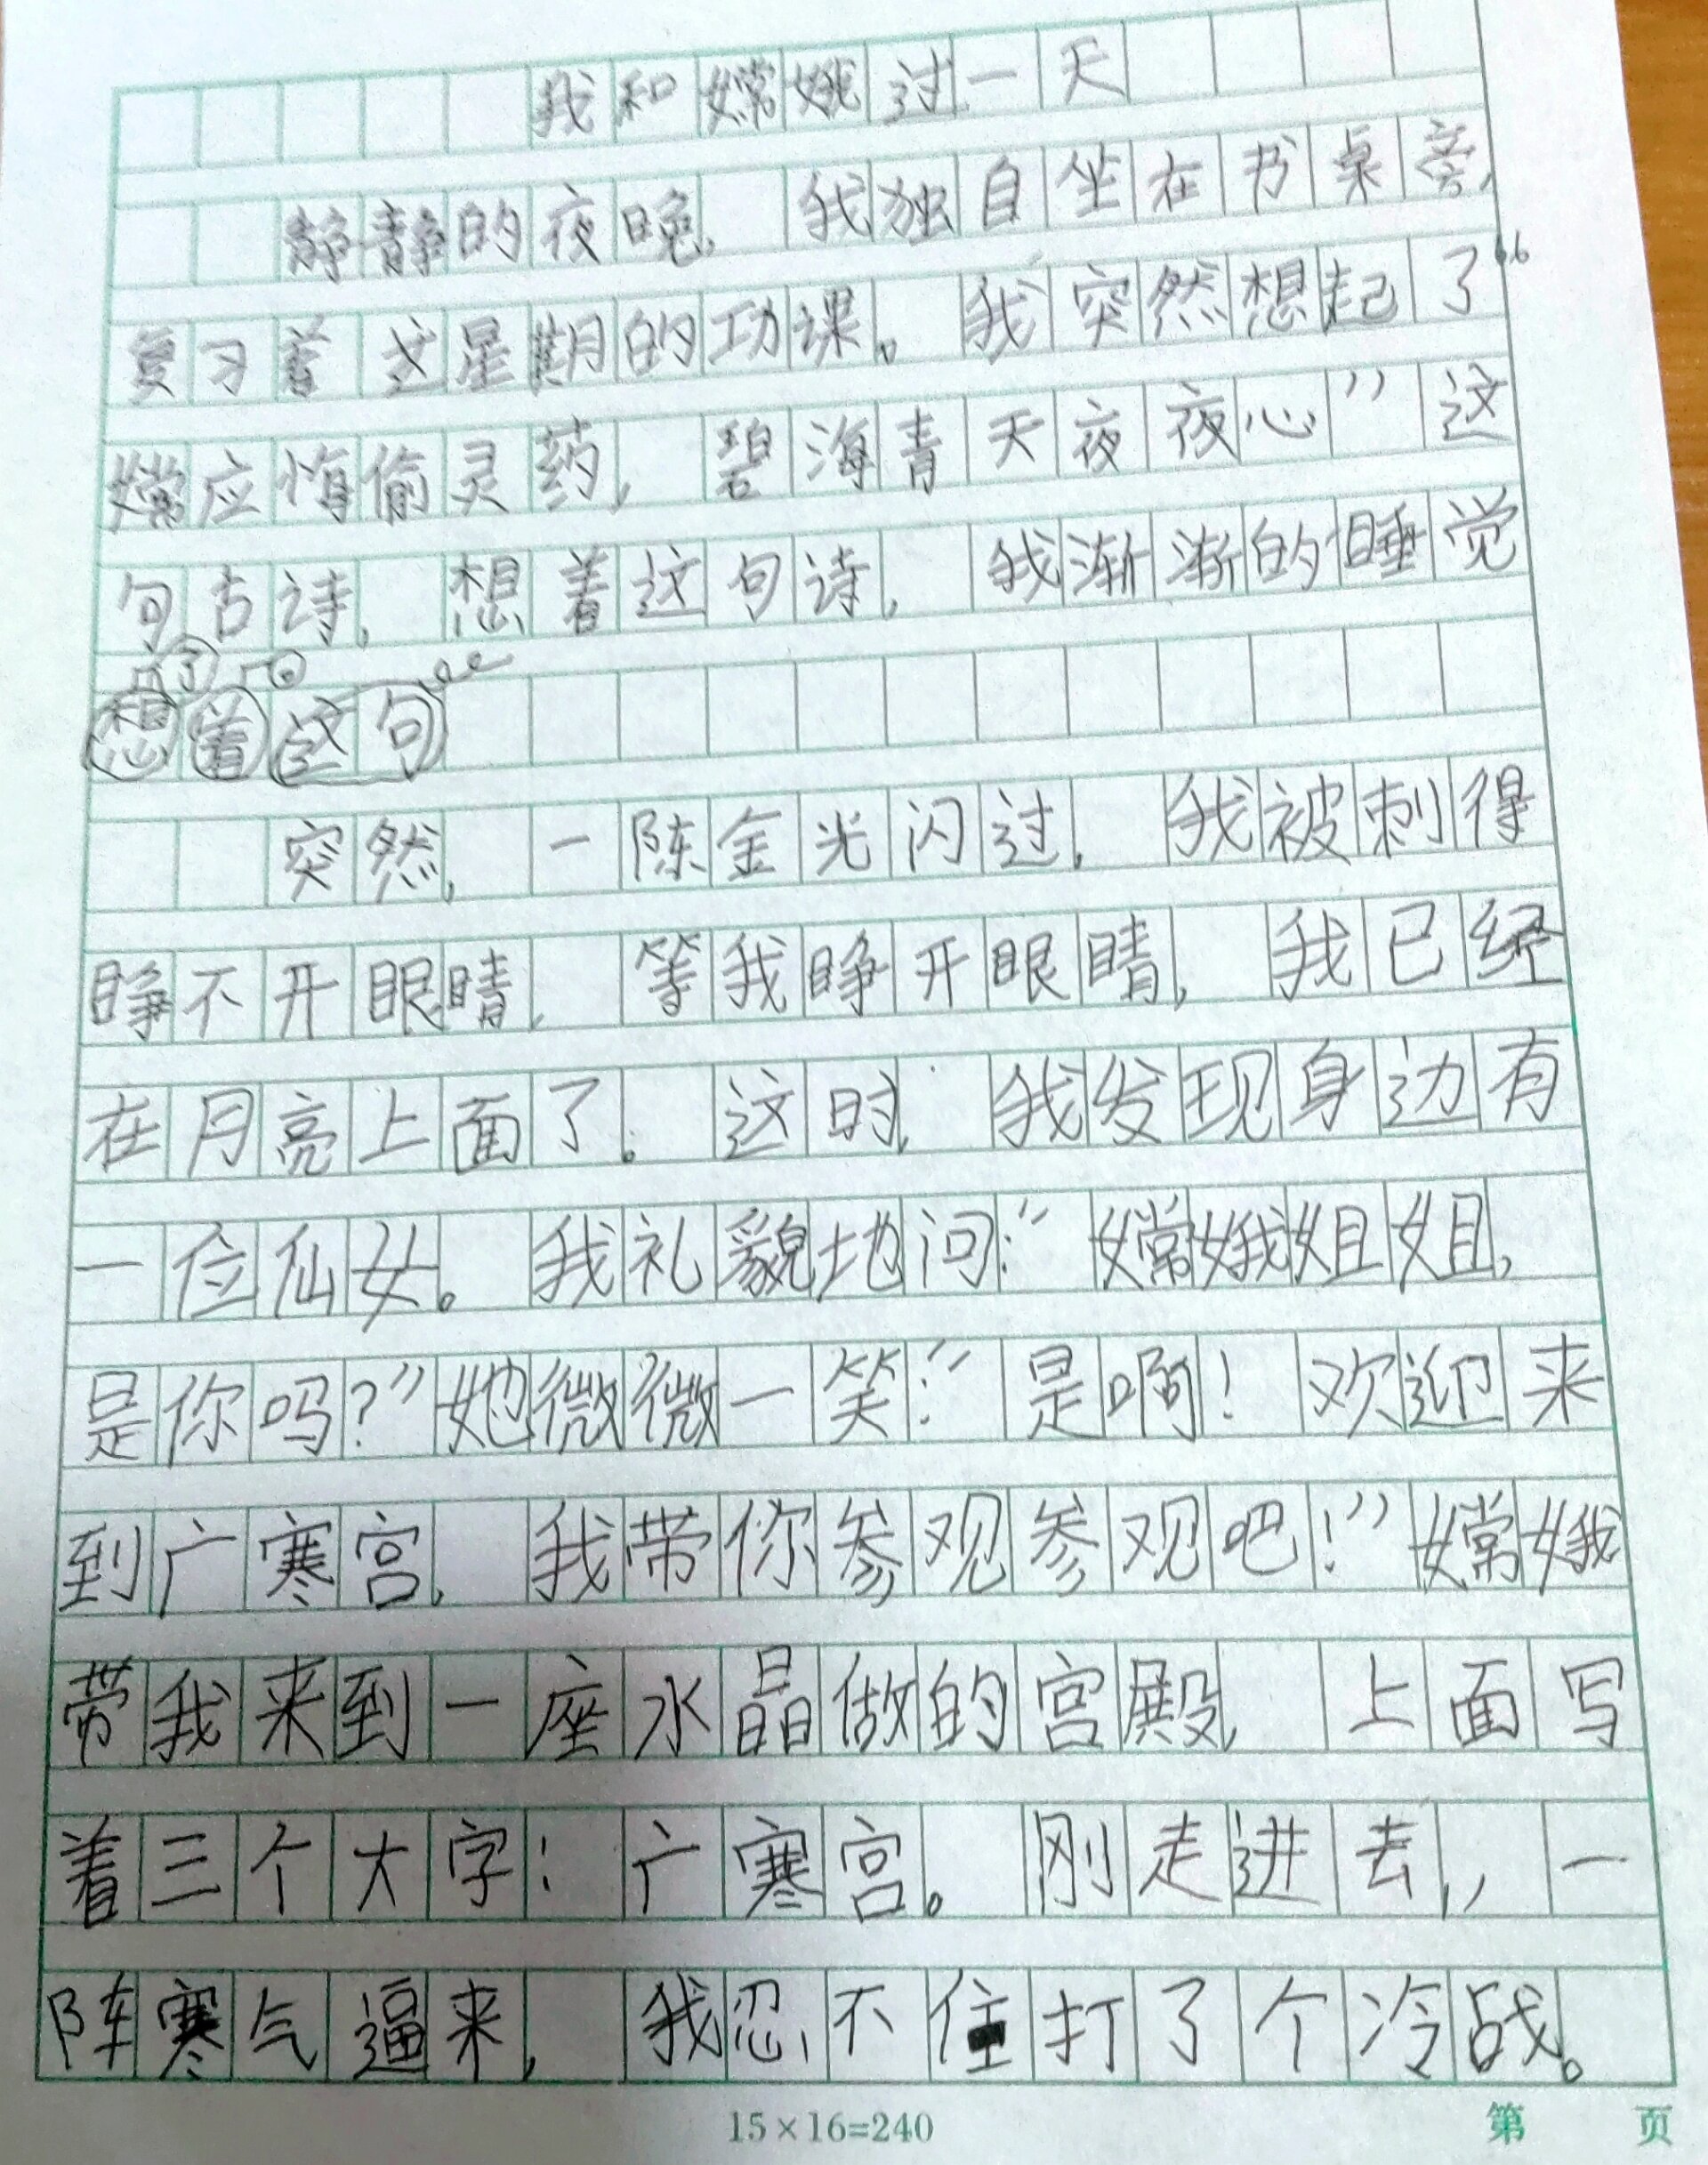 我和嫦娥过一天
静静的夜晚，我独自坐在书桌旁，
复习着这星期的功课。我突然想起了“
嫦应悔偷灵药，碧海青天夜夜心”这
句古诗，想着这句诗，我渐渐的睡觉
想着这句
突然，一陈金光闪过，我被刺得
睁不开眼睛，等我睁开眼睛，我已经
在月亮上面了。这时，我发现身边有
一位仙女。我礼貌地问：“嫦娥姐姐，
是你吗？”她微微一笑：“是啊！欢迎来
到广寒宫，我带你参观参观吧！”嫦娥
带我来到一座水晶做的宫殿，上面写
着三个大字：广寒宫。刚走进去，，一
阵寒气逼来，我忍不住打了个冷战。
15×16=240
第 页